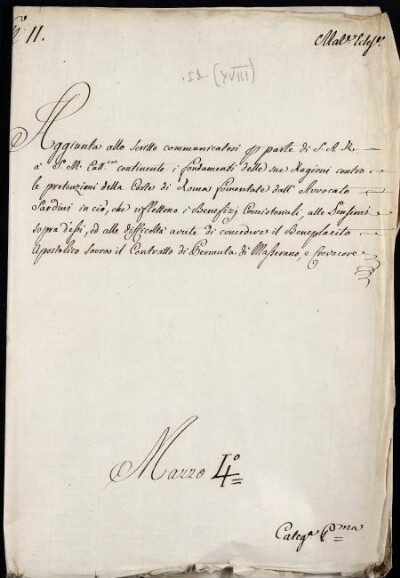 N° 11.
Mat.ª Eccl.ª
s.d. (XVIII)
Aggiunta allo scritto communicatosi per parte di S. A. R.
a S. M. Catt.ca continente i fondamenti delle sue Ragioni contro
le pretenzioni della Corte di Roma fomentate dall'Avvocato
Sardini in ciò, che riflettono i Benefizj Concistoriali, alle Pensioni
sopra d'essi, ed alle difficoltà avute di concedere il Beneplacito
Apostolico sovra il Contratto di Permuta di Masserano, e Crevacore
Mazzo 4°
Categ.ª P.ma